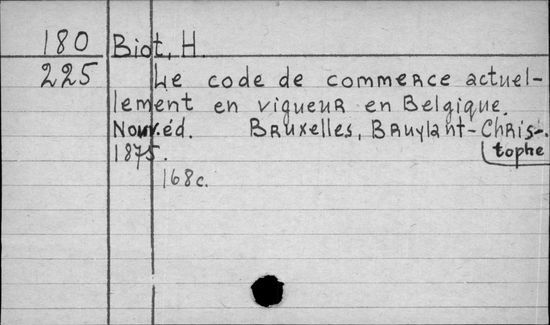 180 Biot, H.
225 Le code de commerce actuel-
lement en vigueur en Belgique.
Nouv. éd. Bruxelles, Bruylant-Chris-
tophe
1875.
168c.